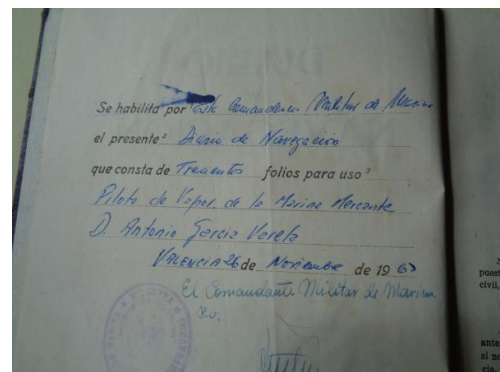 Se habilita por ¹ Esta Comandancia Militar de Marina
el presente ² Diario de Navegación
que consta de Trescientos folios para uso ³
Piloto de Vapor de la Marina Mercante
D. Antonio García Varela
VALENCIA 26 de Noviembre de 1963
El Comandante Militar de Marina
puest
civil,
ante
si no
cia